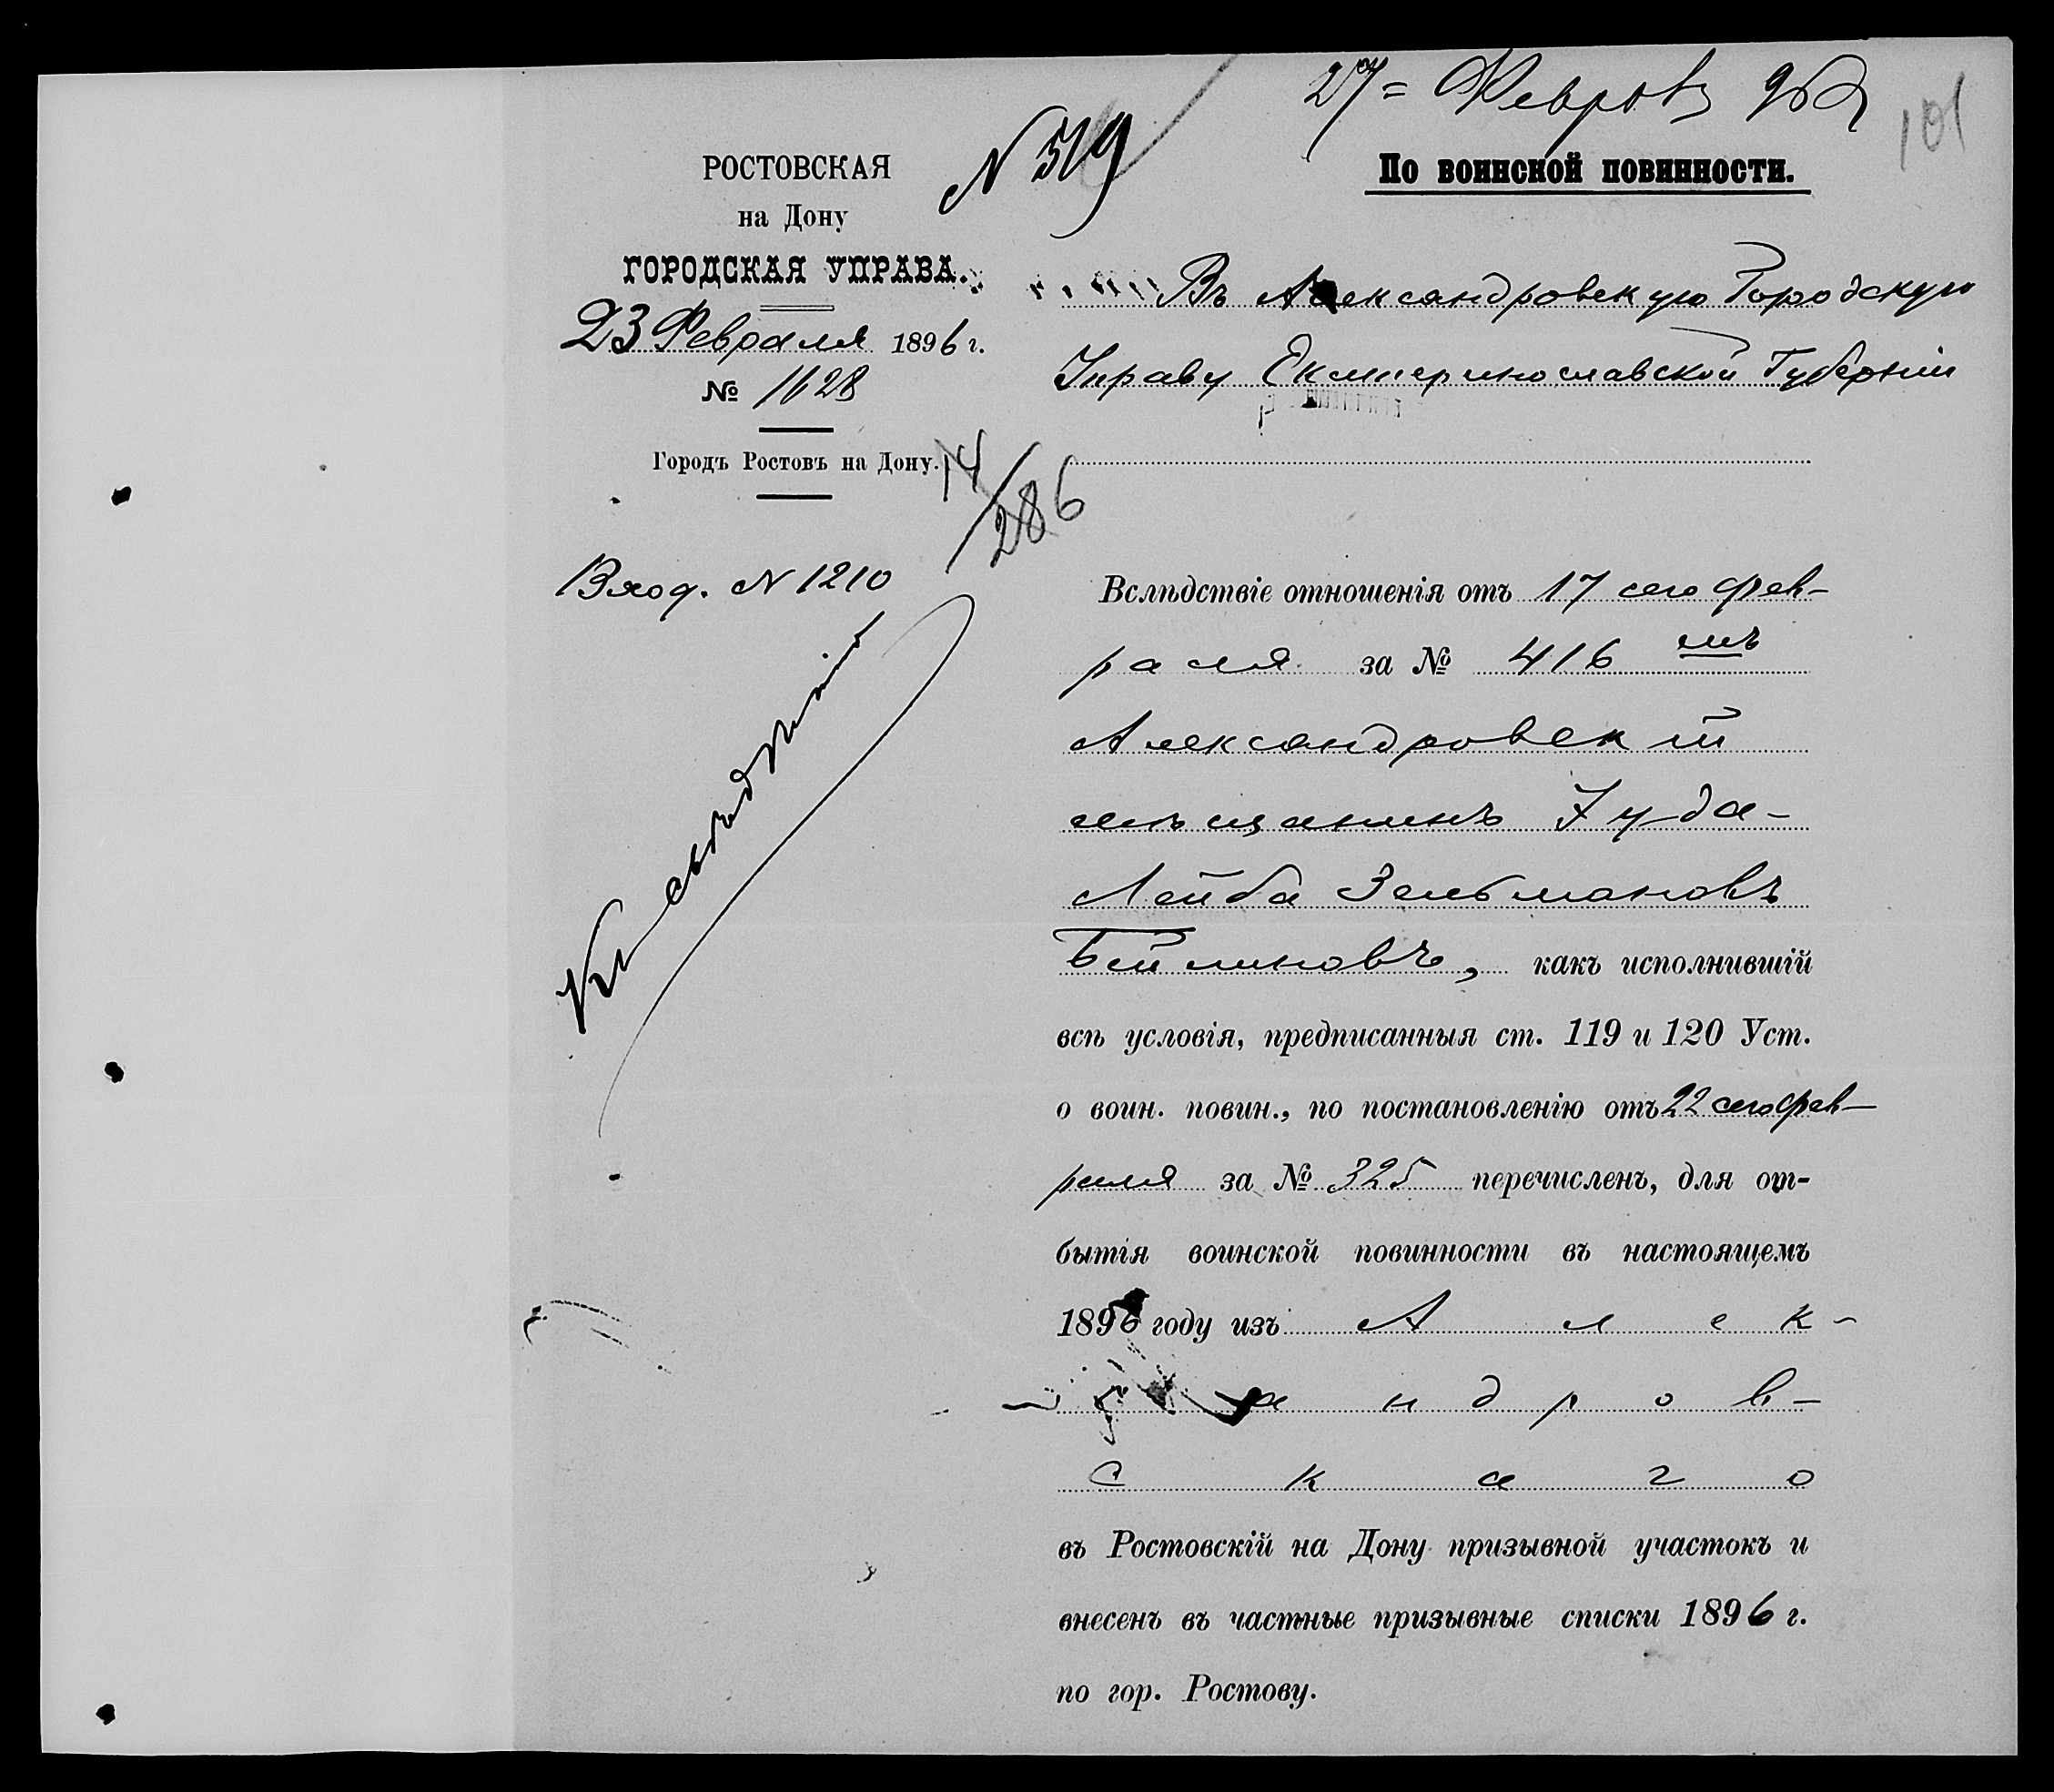 27= Февраля 96 г
101
N 519
РОСТОВСКАЯ
на Дону
ГОРОДСКАЯ УПРАВА.
23 Февраля 1896 г.
№ 1628
Городъ Ростовъ на Дону.
14/286
Вход. N 1210
Къ свѣдѣнію
По воинской повинности.
Въ Александровскую Городскую
Управу Екатеринославской Губерніи
Вслѣдствіе отношенія отъ 17 сего фев-
раля за № 416 мѣ
Александровскій
мѣщанинъ Іуда-
Лейба Зельмановъ
Бейлиновъ, какъ исполнившій
всѣ условія, предписанныя ст. 119 и 120 Уст.
о воин. повин., по постановленію отъ 22 сего фев-
раля за № 325 перечисленъ, для от-
бытія воинской повинности въ настоящемъ
1896 году изъ Алек-
сандров-
скаго
въ Ростовскій на Дону призывной участокъ и
внесенъ въ частные призывные списки 1896 г.
по гор. Ростову.